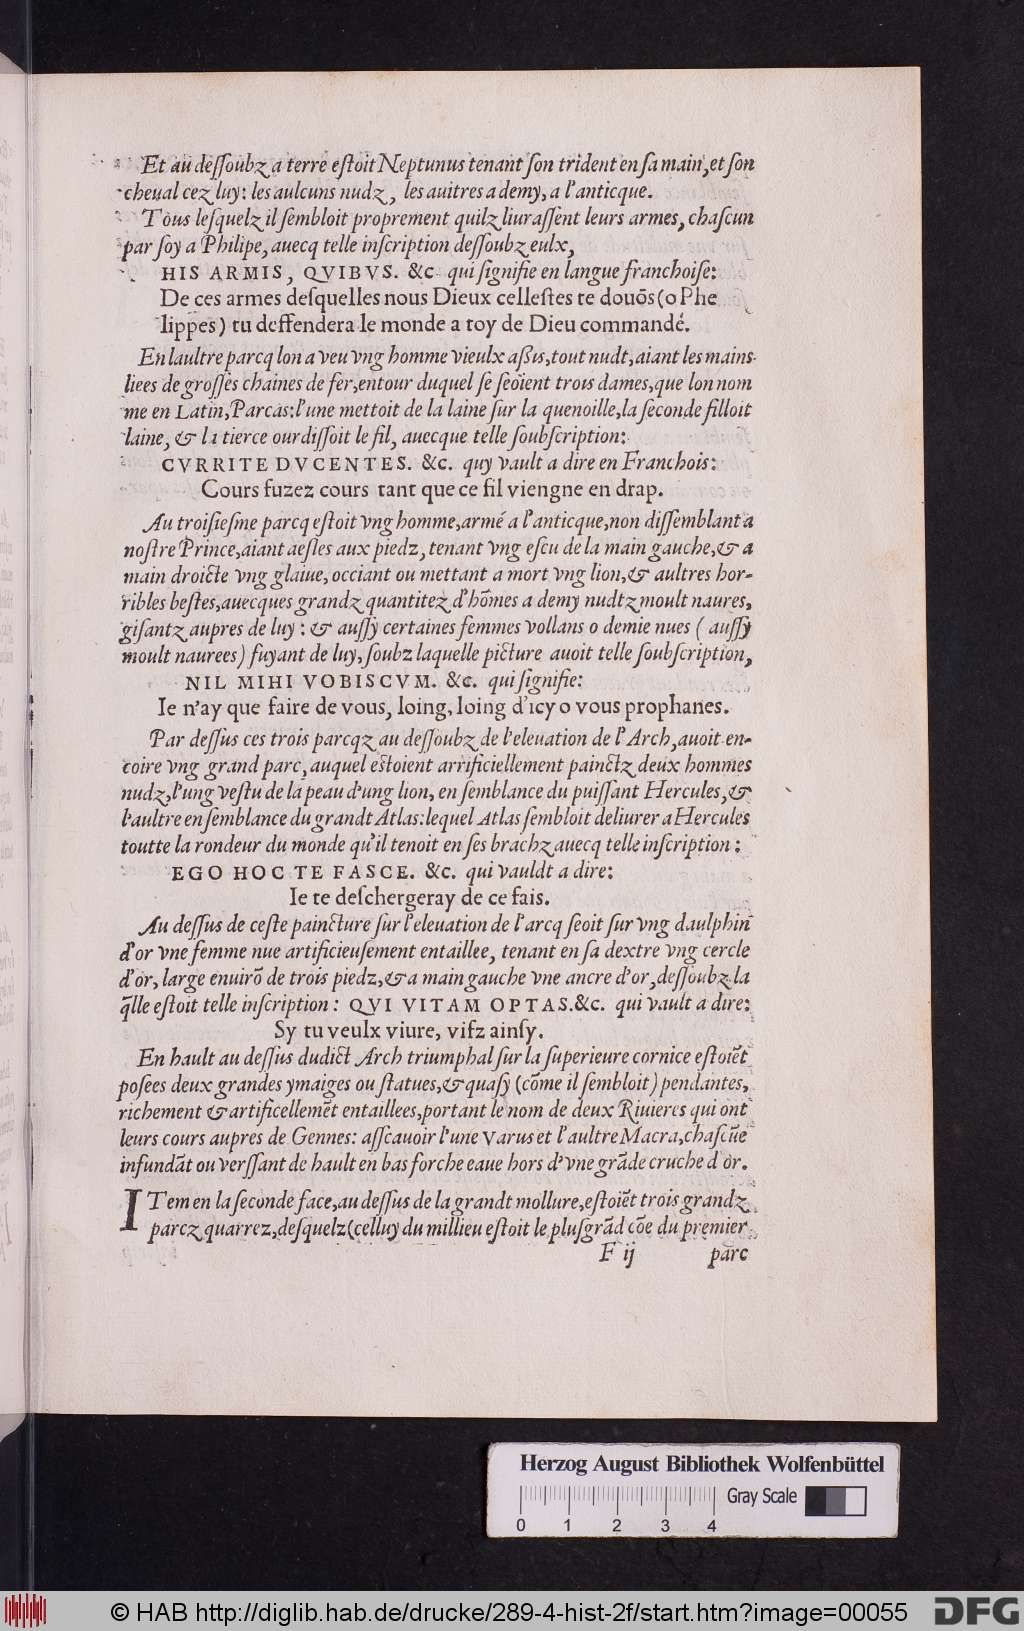 Et au deſſoubz a terre eſtoit Neptunus tenant ſon trident en ſa main, et ſon
cheual cez luy: les aulcuns nudz, les auitres a demy, a l'anticque.
Tous leſquelz il ſembloit proprement quilz liuraſſent leurs armes, chaſcun
par ſoy a Philipe, auecq telle inſcription deſſoubz eulx,
HIS ARMIS, QVIBVS. &c. qui ſignifie en langue franchoiſe:
De ces armes deſquelles nous Dieux celleſtes te douõs (o Phe
lippes) tu deffendera le monde a toy de Dieu commandé.
En laultre parcq lon a veu vng homme vieulx aßis, tout nudt, aiant les mains
liees de groſſes chaines de fer, entour duquel ſe ſeoient trois dames, que lon nom
me en Latin, Parcas: l'une mettoit de la laine ſur la quenoille, la ſeconde filloit
laine, & la tierce ourdiſſoit le fil, auecque telle ſoubſcription:
CVRRITE DVCENTES. &c. quy vault a dire en Franchois:
Cours fuzez cours tant que ce fil viengne en drap.
Au troiſieſme parcq eſtoit vng homme, armé a l'anticque, non diſſemblant a
noſtre Prince, aiant aeſles aux piedz, tenant vng eſcu de la main gauche, & a
main droicte vng glaiue, occiant ou mettant a mort vng lion, & aultres hor-
ribles beſtes, auecques grandz quantitez d'hõmes a demy nudtz moult naures,
giſantz aupres de luy: & auſſy certaines femmes vollans o demie nues (auſſy
moult naurees) fuyant de luy, ſoubz laquelle picture auoit telle ſoubſcription,
NIL MIHI VOBISCVM. &c. qui ſignifie:
Ie n'ay que faire de vous, loing, loing d'icy o vous prophanes.
Par deſſus ces trois parcqz au deſſoubz de l'eleuation de l'Arch, auoit en-
coire vng grand parc, auquel eſtoient artificiellement painctz deux hommes
nudz, l'ung veſtu de la peau d'ung lion, en ſemblance du puiſſant Hercules, &
l'aultre en ſemblance du grandt Atlas: lequel Atlas ſembloit deliurer a Hercules
toutte la rondeur du monde qu'il tenoit en ſes brachz auecq telle inſcription:
EGO HOC TE FASCE. &c. qui vauldt a dire:
Ie te deſchergeray de ce fais.
Au deſſus de ceſte paincture ſur l'eleuation de l'arcq ſeoit ſur vng daulphin
d'or vne femme nue artificieuſement entaillee, tenant en ſa dextre vng cercle
d'or, large enuirõ de trois piedz, & a main gauche vne ancre d'or, deſſoubz la
q̃lle eſtoit telle inſcription: QVI VITAM OPTAS. &c. qui vault a dire:
Sy tu veulx viure, vifz ainſy.
En hault au deſſus dudict Arch triumphal ſur la ſuperieure cornice eſtoiẽt
poſees deux grandes ymaiges ou ſtatues, & quaſy (cõme il ſembloit) pendantes,
richement & artificellemẽt entaillees, portant le nom de deux Riuieres qui ont
leurs cours aupres de Gennes: aſſcauoir l'une Varus et l'aultre Macra, chaſcũe
infundãt ou verſſant de hault en bas forche eaue hors d'vne grãde cruche d'or.
ITem en la ſeconde face, au deſſus de la grandt mollure, eſtoiẽt trois grandz
parcz quarrez, deſquelz (celluy du millieu eſtoit le plus grãd cõe du premier
F ij parc
Herzog August Bibliothek Wolfenbüttel
Gray Scale
0 1 2 3 4
© HAB http://diglib.hab.de/drucke/289-4-hist-2f/start.htm?image=00055
DFG